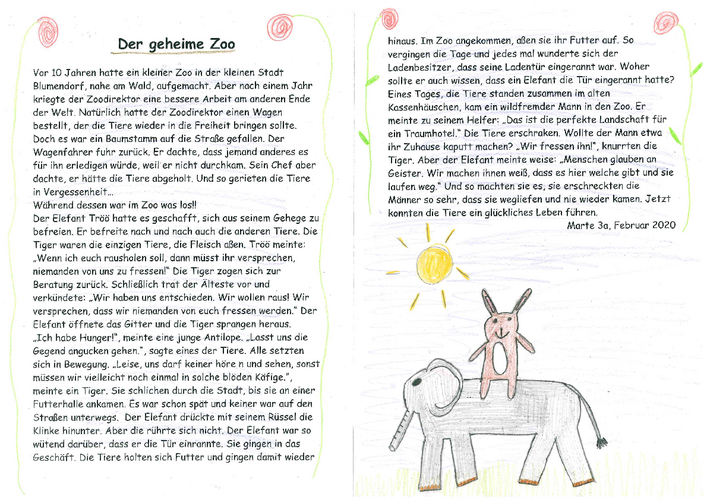 Der geheime Zoo
Vor 10 Jahren hatte ein kleiner Zoo in der kleinen Stadt
Blumendorf, nahe am Wald, aufgemacht. Aber nach einem Jahr
kriegte der Zoodirektor eine bessere Arbeit am anderen Ende
der Welt. Natürlich hatte der Zoodirektor einen Wagen
bestellt, der die Tiere wieder in die Freiheit bringen sollte.
Doch es war ein Baumstamm auf die Straße gefallen. Der
Wagenfahrer fuhr zurück. Er dachte, dass jemand anderes es
für ihn erledigen würde, weil er nicht durchkam. Sein Chef aber
dachte, er hätte die Tiere abgeholt. Und so gerieten die Tiere
in Vergessenheit...
Während dessen war im Zoo was los!!
Der Elefant Tröö hatte es geschafft, sich aus seinem Gehege zu
befreien. Er befreite nach und nach auch die anderen Tiere. Die
Tiger waren die einzigen Tiere, die Fleisch aßen. Tröö meinte:
„Wenn ich euch rausholen soll, dann müsst ihr versprechen,
niemanden von uns zu fressen!" Die Tiger zogen sich zur
Beratung zurück. Schließlich trat der Älteste vor und
verkündete: „Wir haben uns entschieden. Wir wollen raus! Wir
versprechen, dass wir niemanden von euch fressen werden." Der
Elefant öffnete das Gitter und die Tiger sprangen heraus.
„Ich habe Hunger!", meinte eine junge Antilope. „Lasst uns die
Gegend angucken gehen.", sagte eines der Tiere. Alle setzten
sich in Bewegung. „Leise, uns darf keiner höre n und sehen, sonst
müssen wir vielleicht noch einmal in solche blöden Käfige.",
meinte ein Tiger. Sie schlichen durch die Stadt, bis sie an einer
Futterhalle ankamen. Es war schon spät und keiner war auf den
Straßen unterwegs. Der Elefant drückte mit seinem Rüssel die
Klinke hinunter. Aber die rührte sich nicht. Der Elefant war so
wütend darüber, dass er die Tür einrannte. Sie gingen in das
Geschäft. Die Tiere holten sich Futter und gingen damit wieder
hinaus. Im Zoo angekommen, aßen sie ihr Futter auf. So
vergingen die Tage und jedes mal wunderte sich der
Ladenbesitzer, dass seine Ladentür eingerannt war. Woher
sollte er auch wissen, dass ein Elefant die Tür eingerannt hatte?
Eines Tages, die Tiere standen zusammen im alten
Kassenhäuschen, kam ein wildfremder Mann in den Zoo. Er
meinte zu seinem Helfer: „Das ist die perfekte Landschaft für
ein Traumhotel." Die Tiere erschraken. Wollte der Mann etwa
ihr Zuhause kaputt machen? „Wir fressen ihn!", knurrten die
Tiger. Aber der Elefant meinte weise: „Menschen glauben an
Geister. Wir machen ihnen weiß, dass es hier welche gibt und sie
laufen weg." Und so machten sie es, sie erschreckten die
Männer so sehr, dass sie wegliefen und nie wieder kamen. Jetzt
konnten die Tiere ein glückliches Leben führen.
Marte 3a, Februar 2020